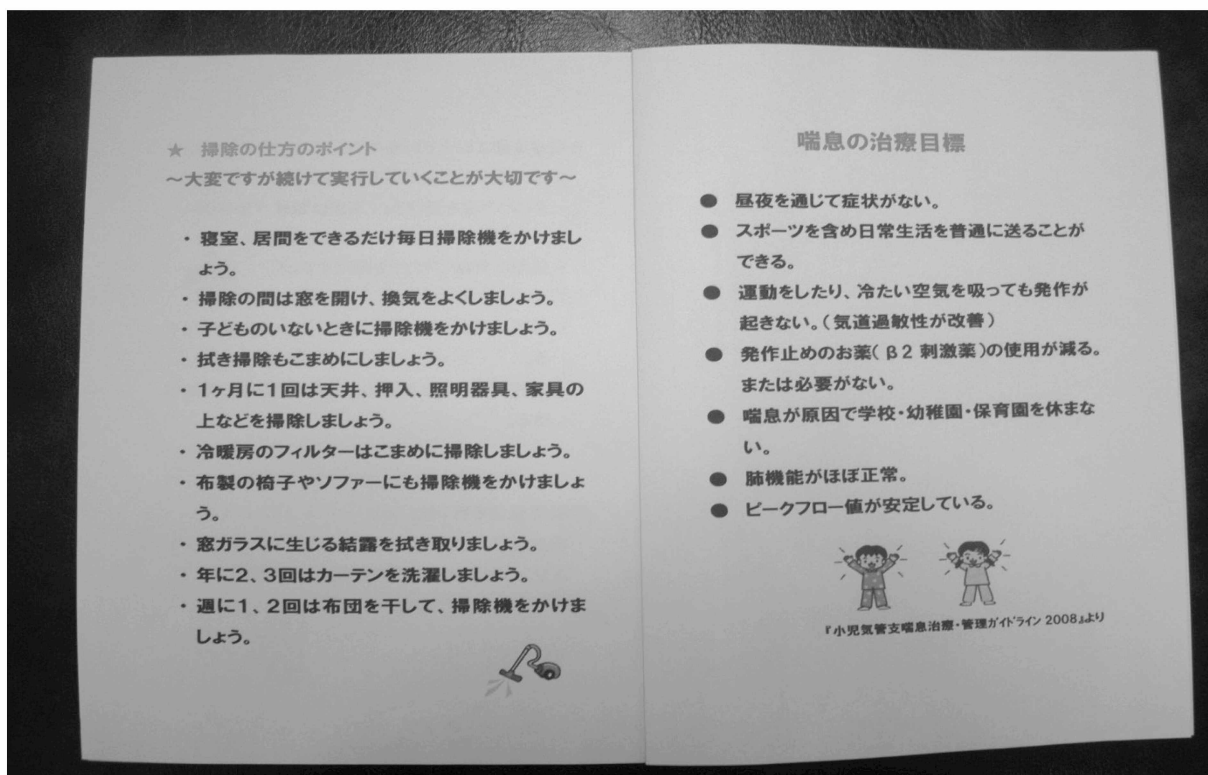 ★ 掃除の仕方のポイント
～大変ですが続けて実行していくことが大切です～
・寝室、居間をできるだけ毎日掃除機をかけまし
ょう。
・掃除の間は窓を開け、換気をよくしましょう。
・子どものいないときに掃除機をかけましょう。
・拭き掃除もこまめにしましょう。
・1ヶ月に1回は天井、押入、照明器具、家具の
上などを掃除しましょう。
・冷暖房のフィルターはこまめに掃除しましょう。
・布製の椅子やソファーにも掃除機をかけましょ
う。
・窓ガラスに生じる結露を拭き取りましょう。
・年に2、3回はカーテンを洗濯しましょう。
・週に1、2回は布団を干して、掃除機をかけま
しょう。
喘息の治療目標
● 昼夜を通じて症状がない。
● スポーツを含め日常生活を普通に送ることが
できる。
● 運動をしたり、冷たい空気を吸っても発作が
起きない。（気道過敏性が改善）
● 発作止めのお薬（β2 刺激薬）の使用が減る。
または必要がない。
● 喘息が原因で学校・幼稚園・保育園を休まな
い。
● 肺機能がほぼ正常。
● ピークフロー値が安定している。
『小児気管支喘息治療・管理ガイドライン 2008』より